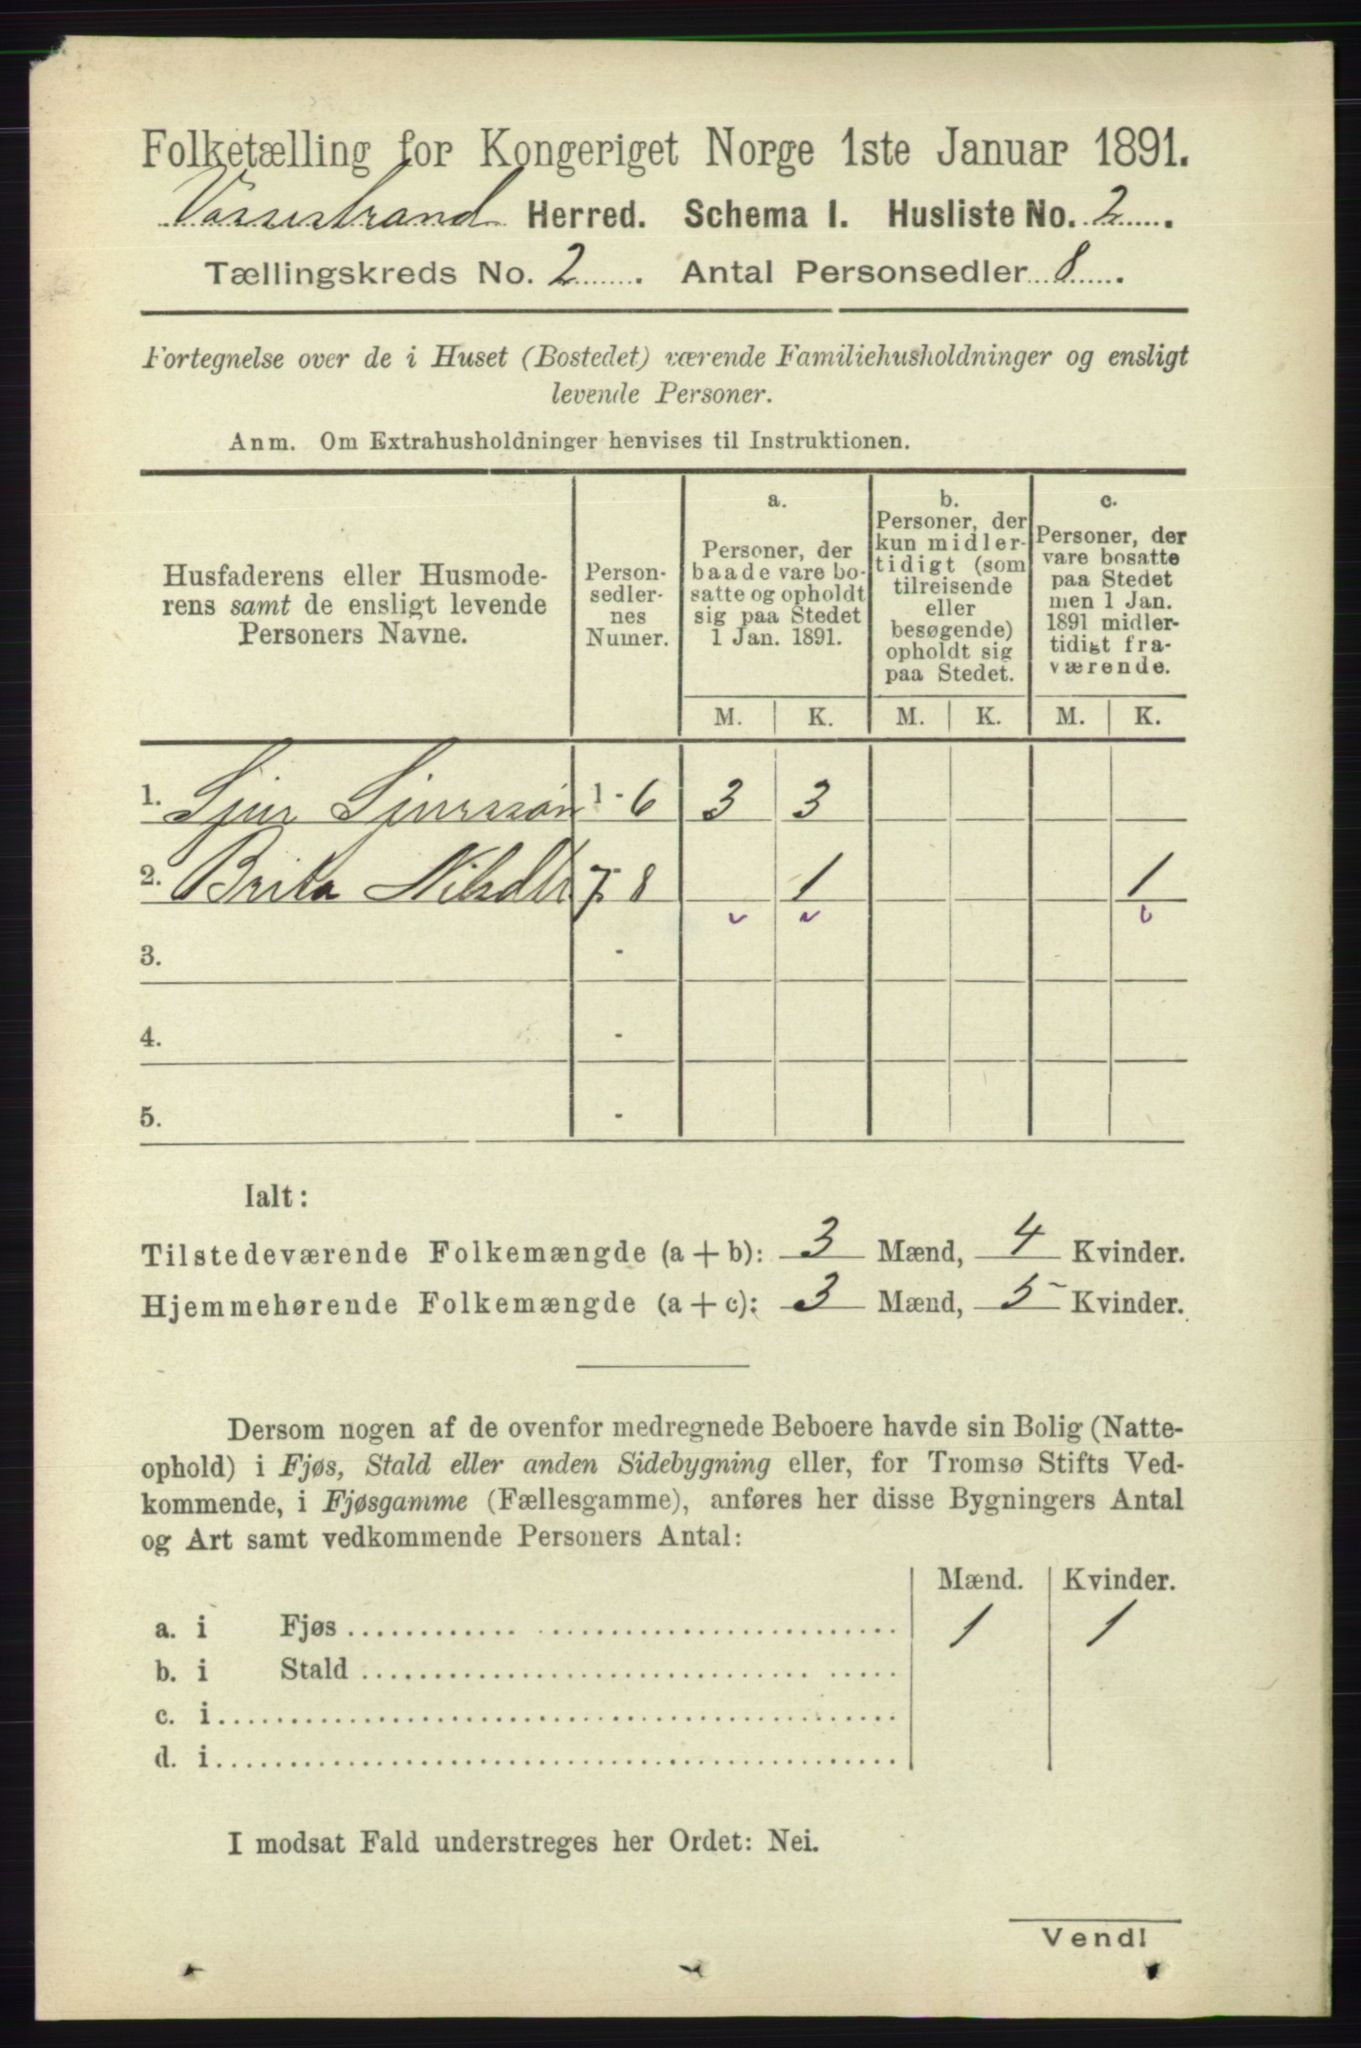 Folketælling for Kongeriget Norge 1ste Januar 1891.
Vossestrand Herred. Schema I. Husliste No. 2
Tællingskreds No. 2. Antal Personsedler 8.
Fortegnelse over de i Huset (Bostedet) værende Familiehusholdninger og ensligt
levende Personer.
Anm. Om Extrahusholdninger henvises til Instruktionen.
Husfaderens eller Husmode-
rens samt de ensligt levende
Personers Navne.
Person-
sedler-
nes
Numer.
a.
Personer, der
baade vare bo-
satte og opholdt
sig paa Stedet
1 Jan. 1891.
b.
Personer, der
kun midler-
tidigt (som
tilreisende
eller
besøgende)
opholdt sig
paa Stedet.
c.
Personer, der
vare bosatte
paa Stedet
men 1 Jan.
1891 midler-
tidigt fra-
værende.
M. K. M. K. M. K.
1. Sjur Sjurssøn 1 - 6 3 3
2. Brita Nilsdtr 7 - 8 1 1
3. -
4. -
5. -
Ialt:
Tilstedeværende Folkemængde (a + b): 3 Mænd, 4 Kvinder.
Hjemmehørende Folkemængde (a + c): 3 Mænd, 5 Kvinder.
Dersom nogen af de ovenfor medregnede Beboere havde sin Bolig (Natte-
ophold) i Fjøs, Stald eller anden Sidebygning eller, for Tromsø Stifts Ved-
kommende, i Fjøsgamme (Fællesgamme), anføres her disse Bygningers Antal
og Art samt vedkommende Personers Antal:
Mænd. Kvinder.
a. i Fjøs 1 1
b. i Stald
c. i
d. i
I modsat Fald understreges her Ordet: Nei.
Vend!